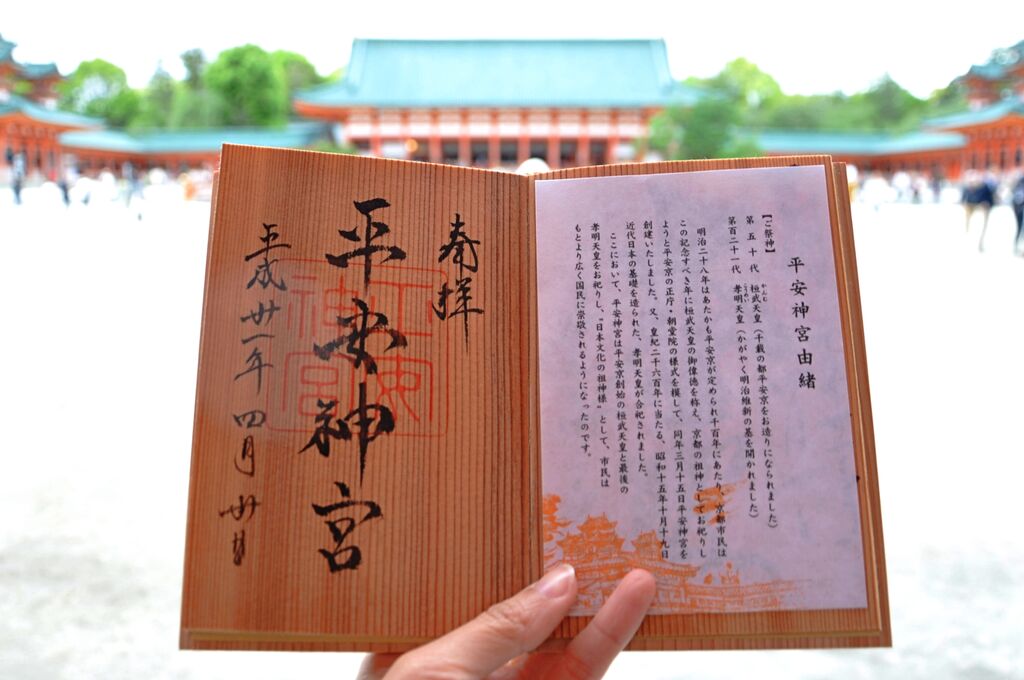 平安神宮由緒
【ご祭神】
第五十代　桓武天皇（千載の都平安京をお造りになられました）
かんむ
第百二十一代　孝明天皇（かがやく明治維新の基を開かれました）
こうめい
明治二十八年はあたかも平安京が定められ千百年にあたり、京都市民は
この記念すべき年に桓武天皇の御偉徳を称え、京都の祖神としてお祀りし
ようと平安京の正庁・朝堂院の様式を模して、同年三月十五日平安神宮を
創建いたしました。又、皇紀二千六百年に当たる、昭和十五年十月十九日
近代日本の基礎を造られた、孝明天皇が合祀されました。
ここにおいて、平安神宮は平安京創始の桓武天皇と最後の
孝明天皇をお祀りし、"日本文化の祖神様"として、市民は
もとより広く国民に崇敬されるようになったのです。
奉拝
平安神宮
平成卅一年四月廿日